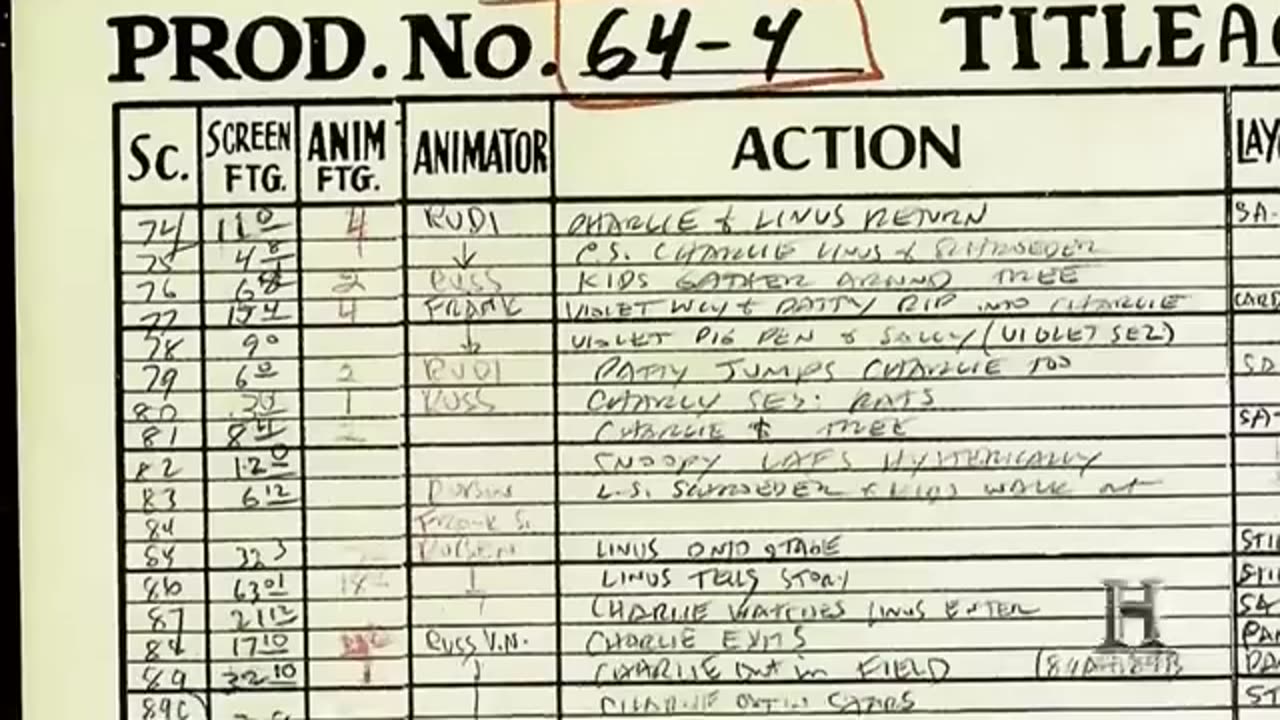 PROD. No. 64-4 TITLE A
Sc. SCREEN FTG. ANIM FTG. ANIMATOR ACTION LAY
74 11 0 4 RUDI CHARLIE & LINUS RETURN SA-
75 4 8 ↓ C.S. CHARLIE LINUS & SCHROEDER
76 6 8 2 RUSS KIDS GATHER AROUND TREE
77 4 FRANK VIOLET LUCY & PATTY RIP INTO CHARLIE
78 9 0 ↓ VIOLET PIG PEN & SALLY (VIOLET SEZ)
79 6 0 2 RUDI PATTY JUMPS CHARLIE TOO SD
80 1 RUSS CHARLY SEZ: RATS
81 8 CHARLIE & TREE SA-
82 12 0 SNOOPY LAFS HYSTERICALLY
83 6 12 RUBEN L.S. SCHROEDER & KIDS WALK
84 FRANK S.
85 32 3 RUBEN LINUS ONTO STAGE
86 63 01 ↓ LINUS TELLS STORY
87 21 12 CHARLIE WATCHES LINUS ENTER SA
88 17 10 RUSS V.N. CHARLIE EXITS PA
89 32 10 CHARLIE OUT IN FIELD
89C CHARLIE
H